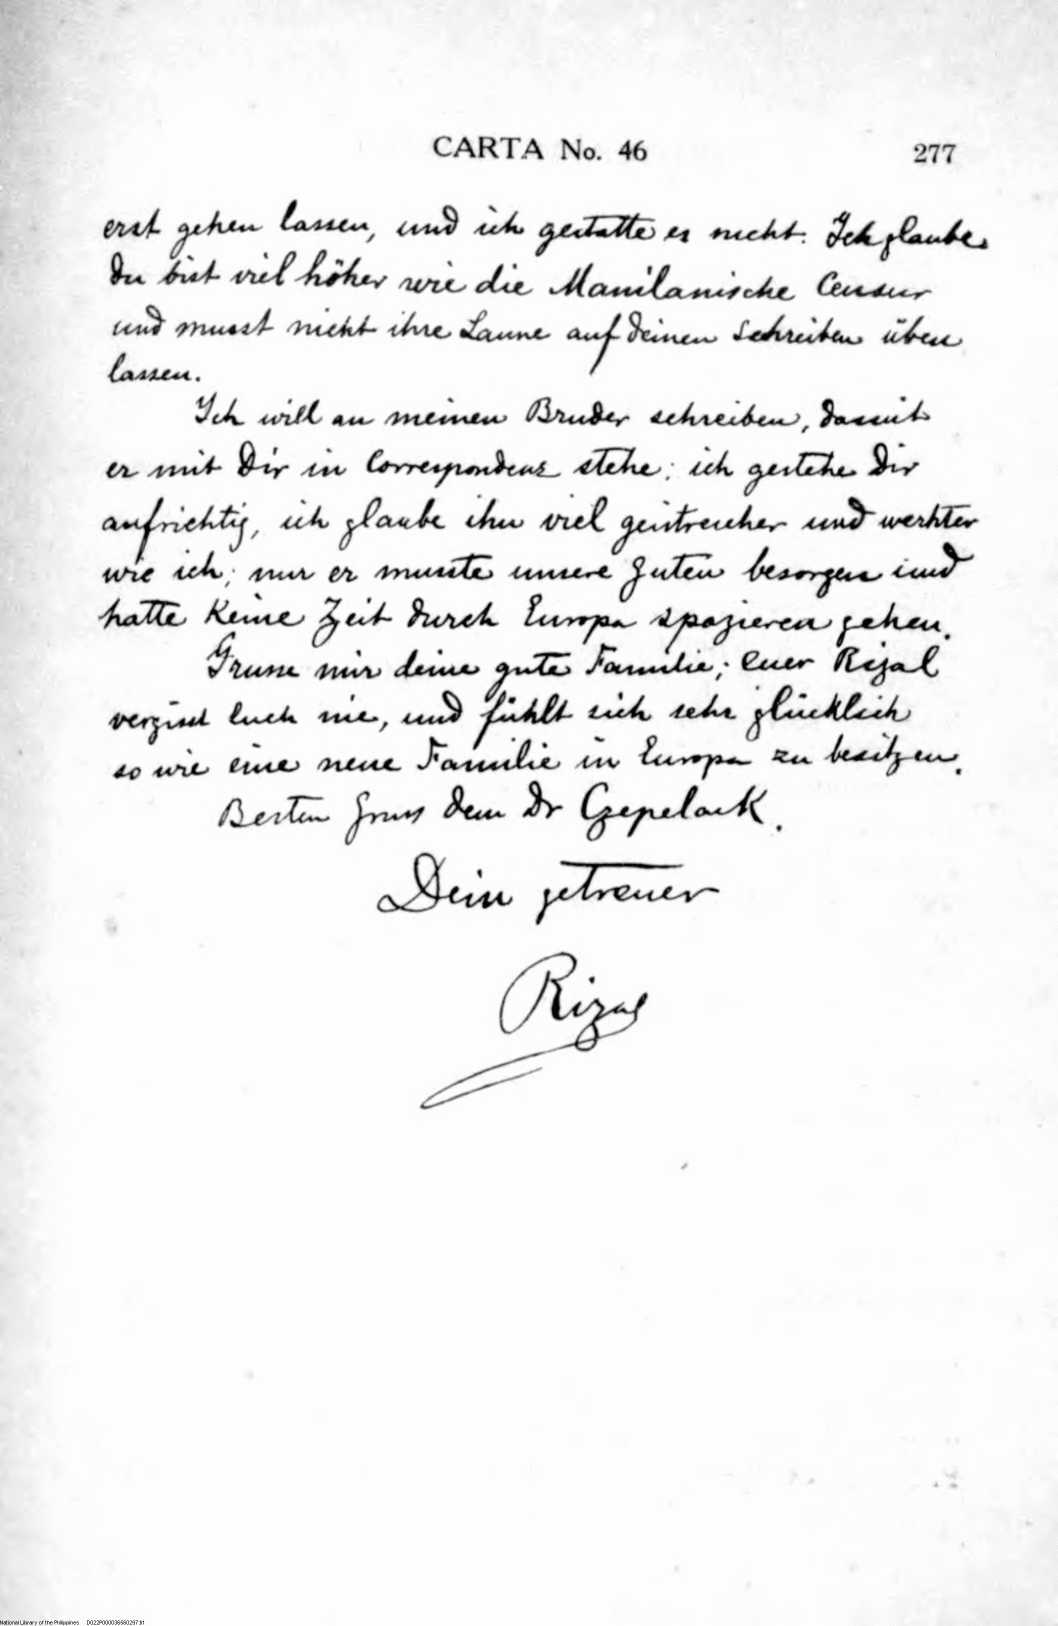 CARTA No. 46
277
erst gehen lassen, und ich gestatte es nicht. Ich glaube
du bist viel höher wie die Manilanische Censur
und musst nicht ihre Laune auf deinen Schreiben üben
lassen.
Ich will an meinen Bruder schreiben, damit
er mit Dir in Correspondenz stehe; ich gestehe Dir
aufrichtig, ich glaube ihn viel geistreicher und werhter
wie ich; nur er musste unsere Guten besorgen und
hatte Keine Zeit durch Europa spazieren gehen.
Grusse mir deine gute Familie; Euer Rizal
vergisst Euch nie, und fühlt sich sehr glücklich
so wie eine neue Familie in Europa zu besitzen.
Besten Gruss dem Dr Czepelack.
Dein getreuer
Rizal
National Library of the Philippines